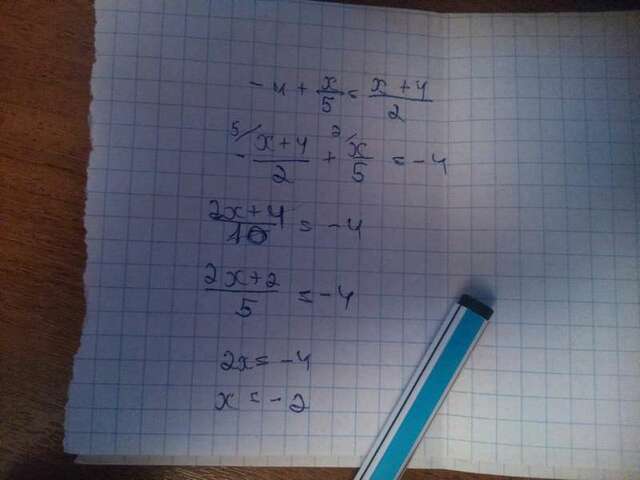 -4 + x/5 = x+4/2
5/ 2/
- x+4/2 + x/5 = -4
2x+4/10 = -4
2x+2/5 = -4
2x = -4
x = -2